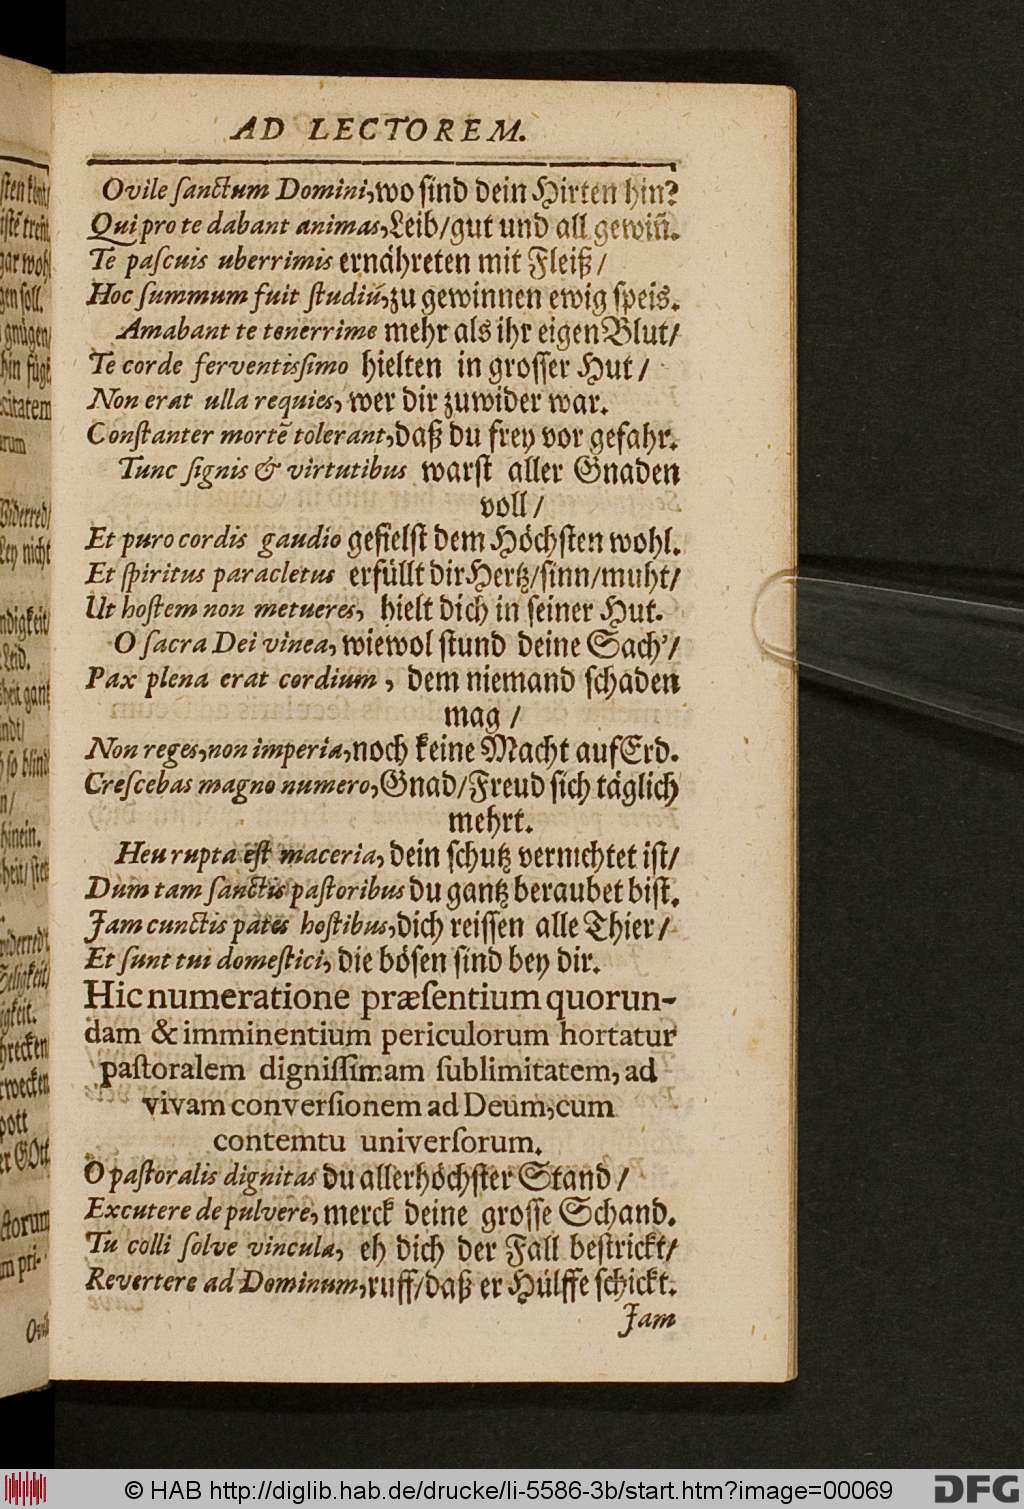 AD LECTOREM.
Ovile ſanctum Domini, wo ſind dein Hirten hin?
Qui pro te dabant animas, Leib/gut und all gewiñ.
Te paſcuis uberrimis ernähreten mit Fleiß/
Hoc ſummum fuit ſtudiũ, zu gewinnen ewig ſpeis.
Amabant te tenerrime mehr als ihr eigen Blut/
Te corde ferventisſimo hielten in groſſer Hut/
Non erat ulla requies, wer dir zuwider war.
Conſtanter mortẽ tolerant, daß du frey vor gefahr.
Tunc ſignis & virtutibus warſt aller Gnaden
voll/
Et puro cordis gaudio gefielſt dem Höchſten wohl.
Et ſpiritus paracletus erfüllt dir Hertz/ſinn/muht/
Ut hoſtem non metueres, hielt dich in ſeiner Hut.
O ſacra Dei vinea, wiewol ſtund deine Sach'/
Pax plena erat cordium, dem niemand ſchaden
mag/
Non reges, non imperia, noch keine Macht auf Erd.
Creſcebas magno numero, Gnad/Freud ſich täglich
mehrt.
Heu rupta eſt maceria, dein ſchutz vernichtet iſt/
Dum tam ſanctis paſtoribus du gantz beraubet biſt.
Jam cunctis pates hoſtibus, dich reiſſen alle Thier/
Et ſunt tui domeſtici, die böſen ſind bey dir.
Hic numeratione præſentium quorun-
dam & imminentium periculorum hortatur
paſtoralem digniſſimam ſublimitatem, ad
vivam converſionem ad Deum, cum
contemtu univerſorum.
O paſtoralis dignitas du allerhöchſter Stand/
Excutere de pulvere, merck deine groſſe Schand.
Tu colli ſolve vincula, eh dich der Fall beſtrickt/
Revertere ad Dominum, ruff/daß er Hülffe ſchickt.
Jam
© HAB http://diglib.hab.de/drucke/li-5586-3b/start.htm?image=00069
DFG